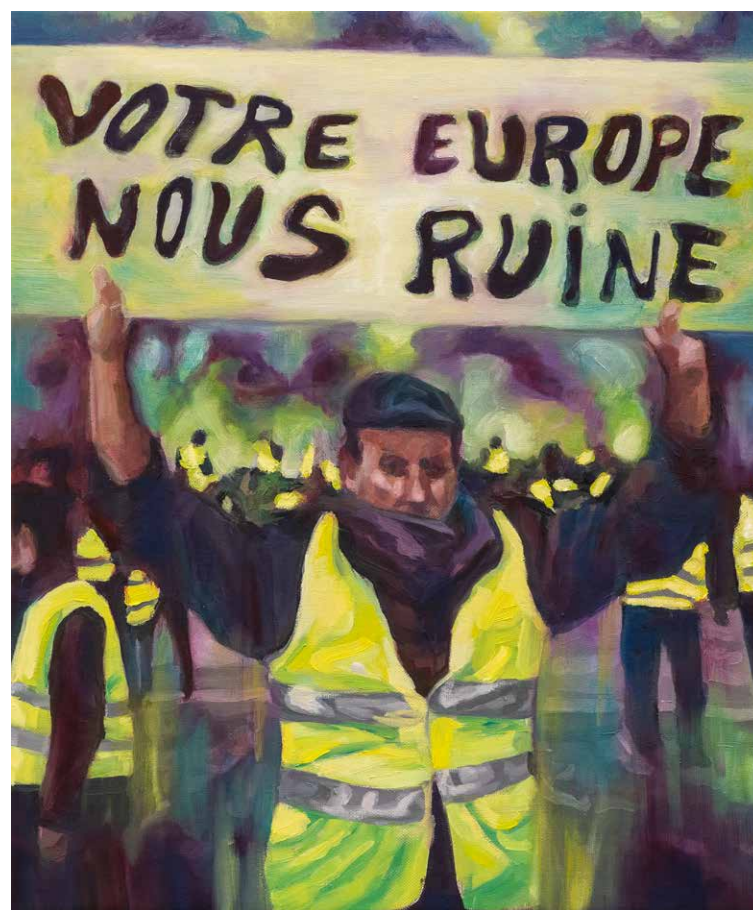 VOTRE EUROPE
NOUS RUiNE